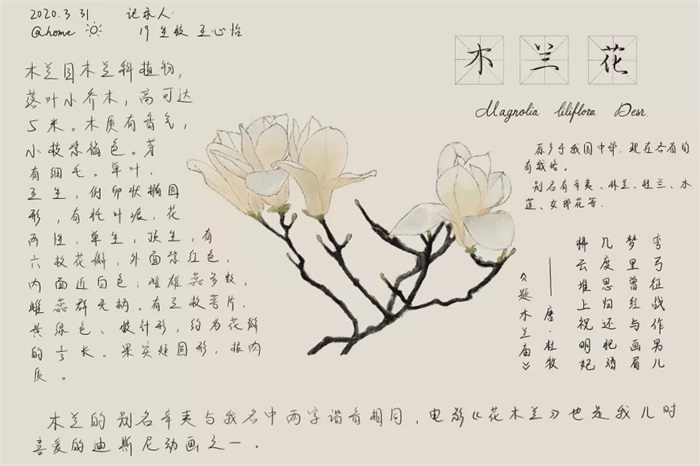 2020.3.31 记录人:
@home 19生教 王心怡
木兰花
Magnolia liliflora Desr.
木兰园木兰科植物，
落叶小乔木，高可达
5米。木质有香气，
小枝紫褐色。芽
有细毛。单叶，
互生，倒卵状椭圆
形，有托叶痕，花
两性，单生，顶生，有
六枚花瓣，外面紫红色，
内面近白色；雌雄蕊多数，
雌蕊群无柄。有三枚萼片，
黄绿色、披针形，约为花瓣
的⅓长。果实矩圆形，
质。
原产于我国中部，现在各省均
有栽培。
别名有辛夷、林兰、桂兰、木
莲、女郎花等。
弯弓征战作男儿
梦里曾经与画眉
几度思归还把酒
拂云堆上祝明妃
——唐·杜牧
《题木兰庙》
木兰的别名辛夷与我名中两字谐音相同，电影《花木兰》也是我儿时
喜爱的迪斯尼动画之一．